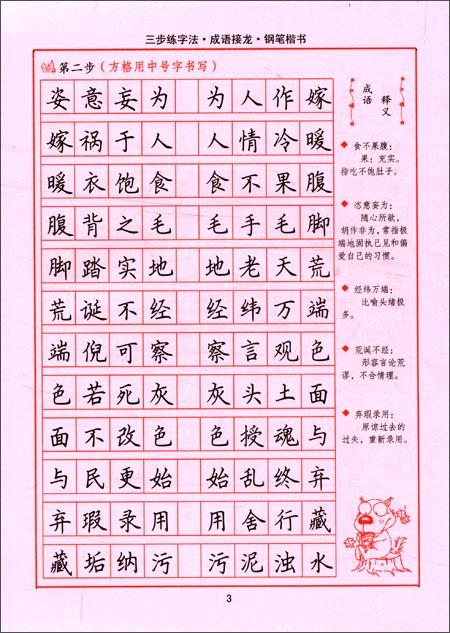 三步练字法·成语接龙·钢笔楷书
第二步（方格用中号字书写）
姿意妄为 为人作嫁
嫁祸于人 人情冷暖
暖衣饱食 食不果腹
腹背之毛 毛手毛脚
脚踏实地 地老天荒
荒诞不经 经纬万端
端倪可察 察言观色
色若死灰 灰头土面
面不改色 色授魂与
与民更始 始乱终弃
弃瑕录用 用舍行藏
藏垢纳污 污泥浊水
成语
释义
食不果腹：
果：充实。
指吃不饱肚子。
恣意妄为：
随心所欲，
胡作非为，常指极
端地固执己见和偏
爱自己的习惯。
经纬万端：
比喻头绪极
多。
荒诞不经：
形容言论荒
谬，不合情理。
弃瑕录用：
原谅过去的
过失，重新录用。
3